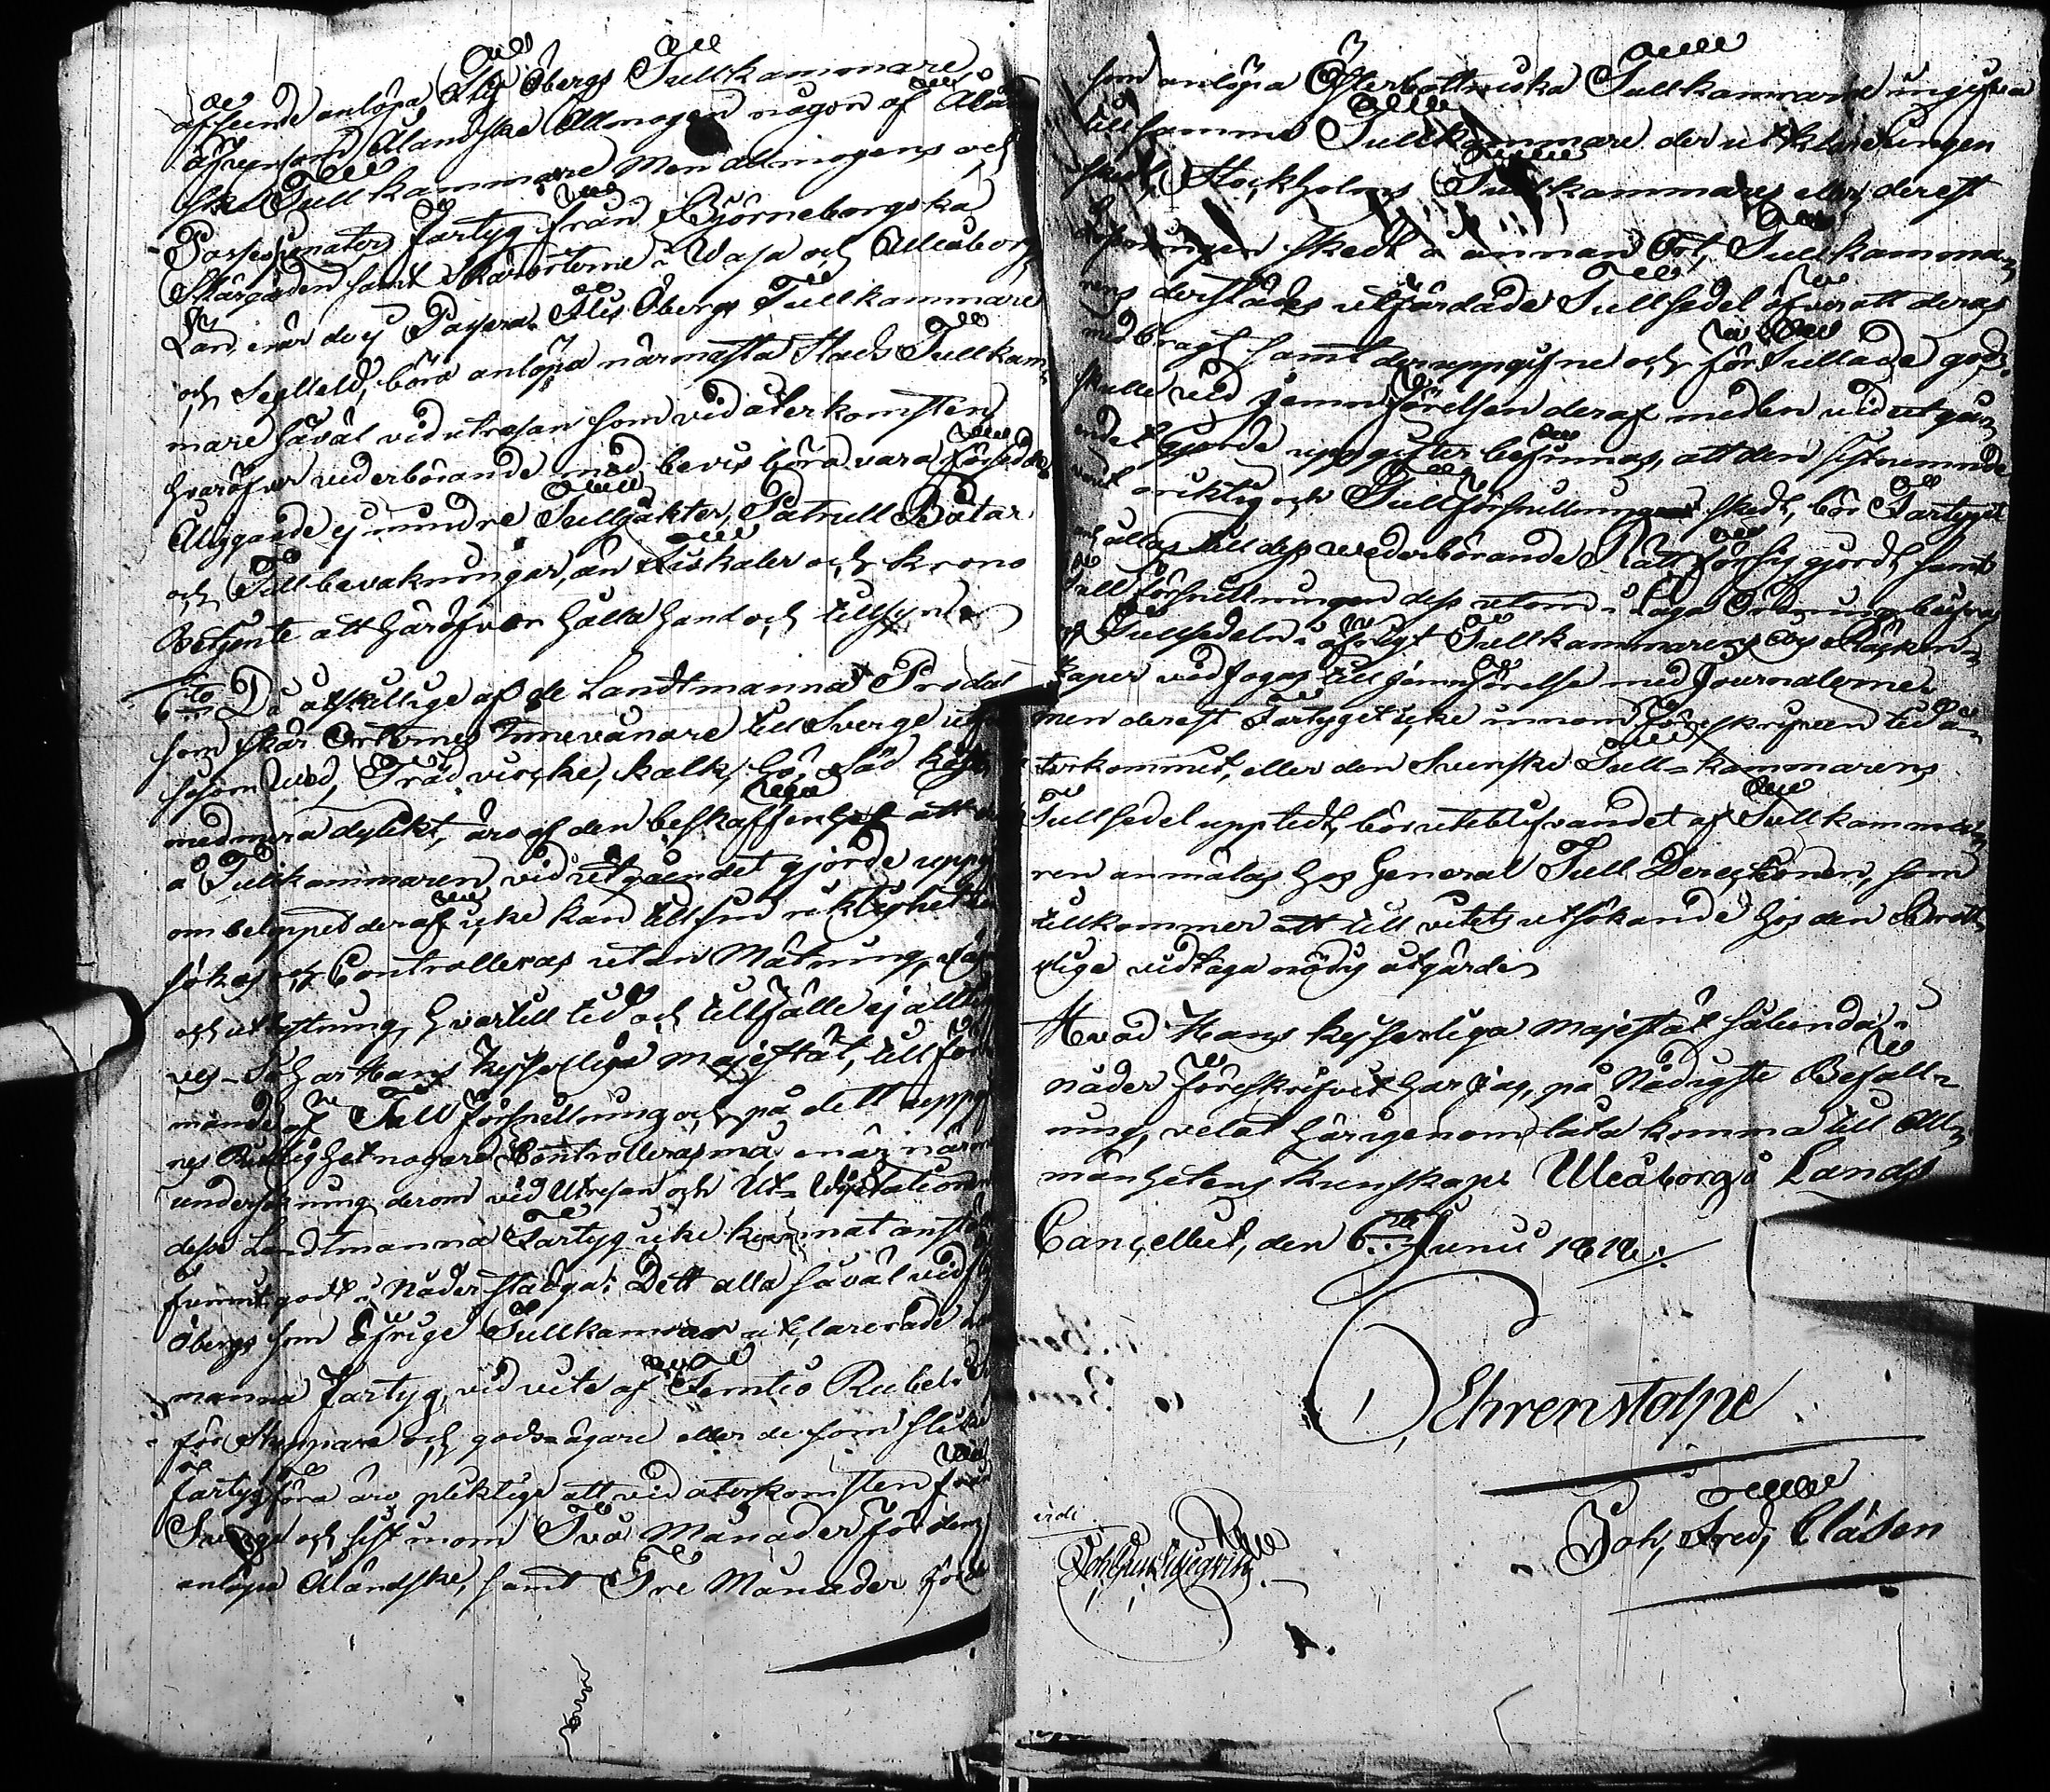 afseende anlöpa Öbergs Tullkammare
äfvensom Åländske Allmogen någon af Ålän
ske Tullkammare Men allmogens och
Possessionaters Fartyg från Björneborgska
Skärgården samt Skärorterne i Wasa och Uleåborgs
Län, när de ej Passera Öbergs Tullkammare
och Segelled, böra anlöpa närmaste Stads Tullkam
mare såväl vid utresan som vid återkomsten
hvaröfver vederbörande med bevis böra vara försedde
Åliggande ej mindre Tulljakter, Patrull Båtar
och Tullbevakningar, än Fiskaler och Krono
Betjente att häröfver hålla hand och tillsyn
6to Då åtskillige af de Landtmanna Produ
som skär Orternes Innevånare till Sverge ut
såsom Wed, Trädvircke, kalk, hö, Säd
med mera dylikt, äro af den beskaffenhet att
å Tullkammaren vid utgåendet gjorde uppg
om beloppet deraf icke kan till sin riktighet
sökas och Controlleras utan Mätning
och utlastning, hvartill tid och tillfälle ej allti
ves Så har Hans kejserliga Majestät, till fö
mande af Tull försnillning och på dett uppg
nes Riktighet nogare Controlleras må, när
undersökning derom vid Utresan och Ut
desse Landtmanna Fartyg icke kunnat anst
funnit godt i Nåder stadga: Dett alla såväl vid
Öbergs som öfrige Tullkamrar utclarerade
manna Fartyg, vid vite af Femtio Rubel
för Skeppare och gods-ägare eller de som slikt
fartyg föra äro pliktige att vid återkomsten från
Sverge och sist inom Två Månader för dem
anlöpa Åländske, samt Tre Månader för de
som anlöpa Österbottniska Tullkamrarne ingifva
till samme Tullkammare der utklareringen
skedt, Stockholms Tullkammares eller derest
skedt å annan Ort, Tullkamma
rens derstädes utfärdade Tullsedel öfver att deras
medbragt samt der uppgifne och förtullade gods.
Skulle vid jemnförelsen deraf med den vid utgå
endet gjorde uppgifter befinnas, att den sistnemnde
varit oriktig och Tullförsnillning skedt, bör Fartyget
qvarhållas till dess wederbörande Rätt för sig gjordt, samt
Tullförsnillningen dess utom i laga Ordning beifras
Tullsedeln i öfrigt Tullkammarens Räken
skaper vidfogas till jemnförelse med Journalerne
men derest Fartyget icke innom föreskrifven tid å
terkommit, eller den Svenske Tull-kammarens
Tullsedel uppvist, bör uteblifvandet af Tullkamma
ren anmälas hos General Tull Directionen, som
tillkommer att till vitets utsökande hos den Brott
slige vidtaga nödig åtgärd
Hvad Hans kejserliga Majestät sålunda i
nåder föreskrifvit har jag, på Nådigste Befall
ning, velat härigenom låta komma till All
mänhetens kunskap. Uleåborgs Lands
Cancellie, den 6te Junii 1818.
Ehrenstolpe
Joh, Fred, Clasen
vidi